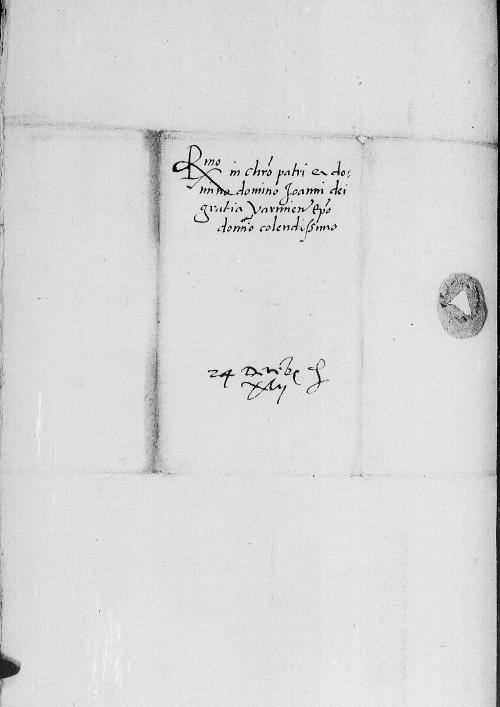 Rmo in chro patri et do:
mino domino Joanni dei
gratia Varmien epo
domino colendissimo
24